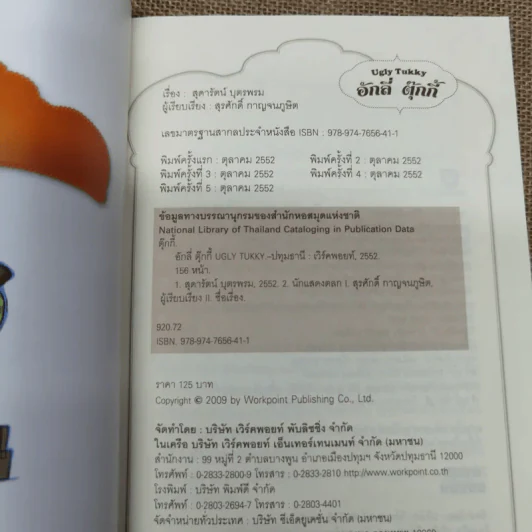 Ugly Tukky
อักลี่ ตุ๊กกี้
เรื่อง : สุดารัตน์ บุตรพรม
ผู้เรียบเรียง : สุรศักดิ์ กาญจนภูษิต
เลขมาตรฐานสากลประจำหนังสือ ISBN : 978-974-7656-41-1
พิมพ์ครั้งแรก : ตุลาคม 2552 พิมพ์ครั้งที่ 2 : ตุลาคม 2552
พิมพ์ครั้งที่ 3 : ตุลาคม 2552 พิมพ์ครั้งที่ 4 : ตุลาคม 2552
พิมพ์ครั้งที่ 5 : ตุลาคม 2552
ข้อมูลทางบรรณานุกรมของสำนักหอสมุดแห่งชาติ
National Library of Thailand Cataloging in Publication Data
ตุ๊กกี้.
อักลี่ ตุ๊กกี้ UGLY TUKKY.--ปทุมธานี : เวิร์คพอยท์, 2552.
156 หน้า.
1. สุดารัตน์ บุตรพรม, 2552. 2. นักแสดงตลก I. สุรศักดิ์ กาญจนภูษิต,
ผู้เรียบเรียง II. ชื่อเรื่อง.
920.72
ISBN. 978-974-7656-41-1
ราคา 125 บาท
Copyright © 2009 by Workpoint Publishing Co., Ltd.
จัดทำโดย : บริษัท เวิร์คพอยท์ พับลิชชิ่ง จำกัด
ในเครือ บริษัท เวิร์คพอยท์ เอ็นเทอร์เทนเมนท์ จำกัด (มหาชน)
สำนักงาน : 99 หมู่ที่ 2 ตำบลบางพูน อำเภอเมืองปทุมฯ จังหวัดปทุมธานี 12000
โทรศัพท์ : 0-2833-2800-9 โทรสาร : 0-2833-2810 http://www.workpoint.co.th
โรงพิมพ์ : บริษัท พิมพ์ดี จำกัด
โทรศัพท์ : 0-2803-2694-7 โทรสาร : 0-2803-4401
จัดจำหน่ายทั่วประเทศ : บริษัท ซีเอ็ดยูเคชั่น จำกัด (มหาชน)